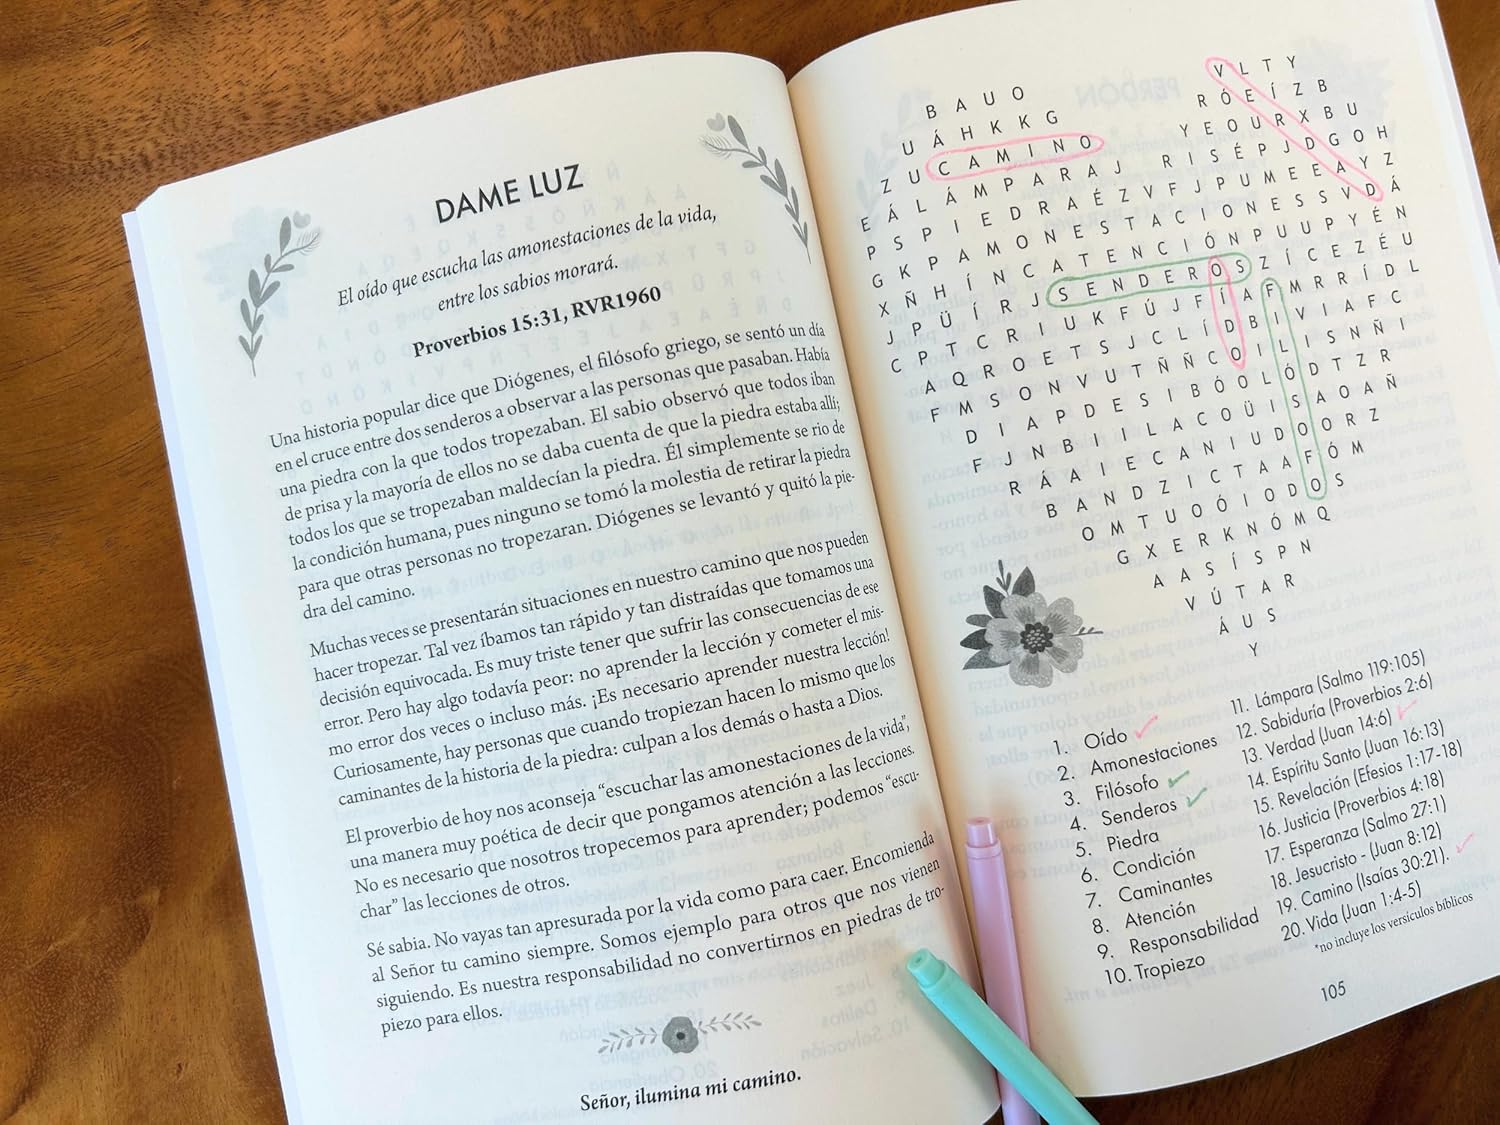 DAME LUZ
El oído que escucha las amonestaciones de la vida,
entre los sabios morará.
Proverbios 15:31, RVR1960
Una historia popular dice que Diógenes, el filósofo griego, se sentó un día
en el cruce entre dos senderos a observar a las personas que pasaban. Había
una piedra con la que todos tropezaban. El sabio observó que todos iban
de prisa y la mayoría de ellos no se daba cuenta de que la piedra estaba allí;
todos los que se tropezaban maldecían la piedra. Él simplemente se rio de
la condición humana, pues ninguno se tomó la molestia de retirar la piedra
para que otras personas no tropezaran. Diógenes se levantó y quitó la pie-
dra del camino.
Muchas veces se presentarán situaciones en nuestro camino que nos pueden
hacer tropezar. Tal vez íbamos tan rápido y tan distraídas que tomamos una
decisión equivocada. Es muy triste tener que sufrir las consecuencias de ese
error. Pero hay algo todavía peor: no aprender la lección y cometer el mis-
mo error dos veces o incluso más. ¡Es necesario aprender nuestra lección!
Curiosamente, hay personas que cuando tropiezan hacen lo mismo que los
caminantes de la historia de la piedra: culpan a los demás o hasta a Dios.
El proverbio de hoy nos aconseja “escuchar las amonestaciones de la vida”,
una manera muy poética de decir que pongamos atención a las lecciones.
No es necesario que nosotros tropecemos para aprender; podemos “escu-
char” las lecciones de otros.
Sé sabia. No vayas tan apresurada por la vida como para caer. Encomienda
al Señor tu camino siempre. Somos ejemplo para otros que nos vienen
siguiendo. Es nuestra responsabilidad no convertirnos en piedras de tro-
piezo para ellos.
Señor, ilumina mi camino.
B A U O V L T Y
U Á H K K G R Ó E Í Z B
Z U C A M I N O Y E O U R X B U
E Á L Á M P A R A J R I S É P J D G O H
P S P I E D R A É Z V F J P U M E E A Y Z
G K P A M O N E S T A C I O N E S S V D Á
X Ñ H Í N C A T E N C I Ó N P U U P Y É N
J P Ü Í R J S E N D E R O S Z Í C E Z É U
C P T C R I U K F Ú J F Í A F M R R Í D L
A Q R O E T S J C L Í D B I V I A F C
F M S O N V U T Ñ Ñ C O I L I S N Ñ I
D I A P D E S I B Ó O L Ó D T Z R
F J N B I I L A C O Ü I S A O A Ñ
R Á A I E C A N I U D O O R Z
B A N D Z I C T A A F Ó M
O M T U O Ó I O D O S
G X E R K N Ó M Q
A A S Í S P N
V Ú T A R
Á U S
Y
1. Oído
2. Amonestaciones
3. Filósofo
4. Senderos
5. Piedra
6. Condición
7. Caminantes
8. Atención
9. Responsabilidad
10. Tropiezo
11. Lámpara (Salmo 119:105)
12. Sabiduría (Proverbios 2:6)
13. Verdad (Juan 14:6)
14. Espíritu Santo (Juan 16:13)
15. Revelación (Efesios 1:17-18)
16. Justicia (Proverbios 4:18)
17. Esperanza (Salmo 27:1)
18. Jesucristo - (Juan 8:12)
19. Camino (Isaías 30:21).
20. Vida (Juan 1:4-5)
*no incluye los versículos bíblicos
105